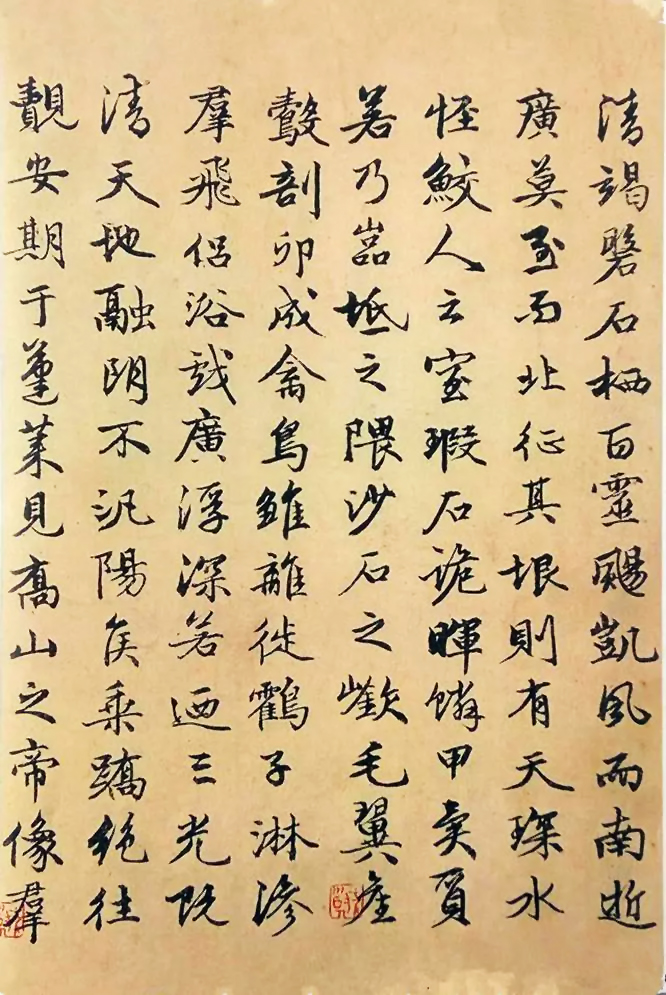 清竭磐石栖百靈颺凱風而南逝
廣莫至而北征其垠則有天琛水
怪鮫人之室瑕石詭暉鱗甲異質
若乃嵓坻之隈沙石之嶔毛翼産
鷇剖卵成禽鳧雛離徙鸖子淋滲
羣飛侶浴戲廣浮深若迺三光既
清天地融朗不汎陽侯乘蹻絕往
覿安期于蓬萊見喬山之帝像羣